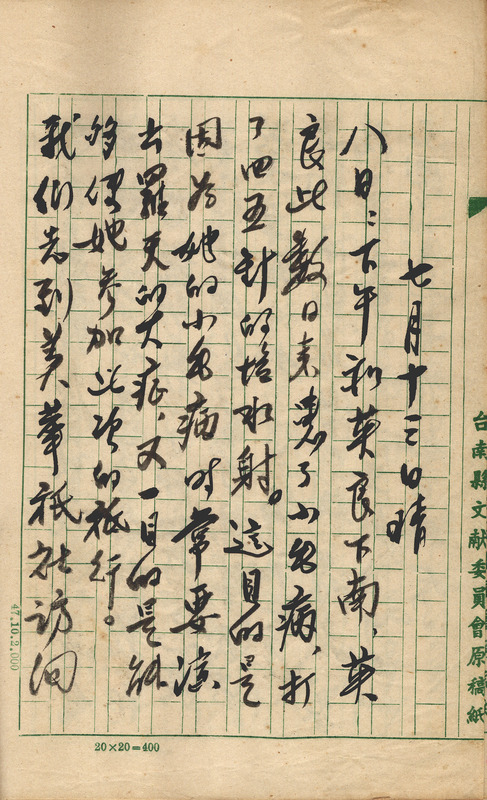 台南縣文献委員會原稿紙
七月十三日晴
八日：下午和英良下南，英
良此數日来患了小兒病，打
了四五針的培水射。這目的是
因為她的小兒病时常要演
出的大症，又一目的是能
够使她參加此次的旅行。
我们先到美華旅社訪问
47.10.2,000
20×20=400